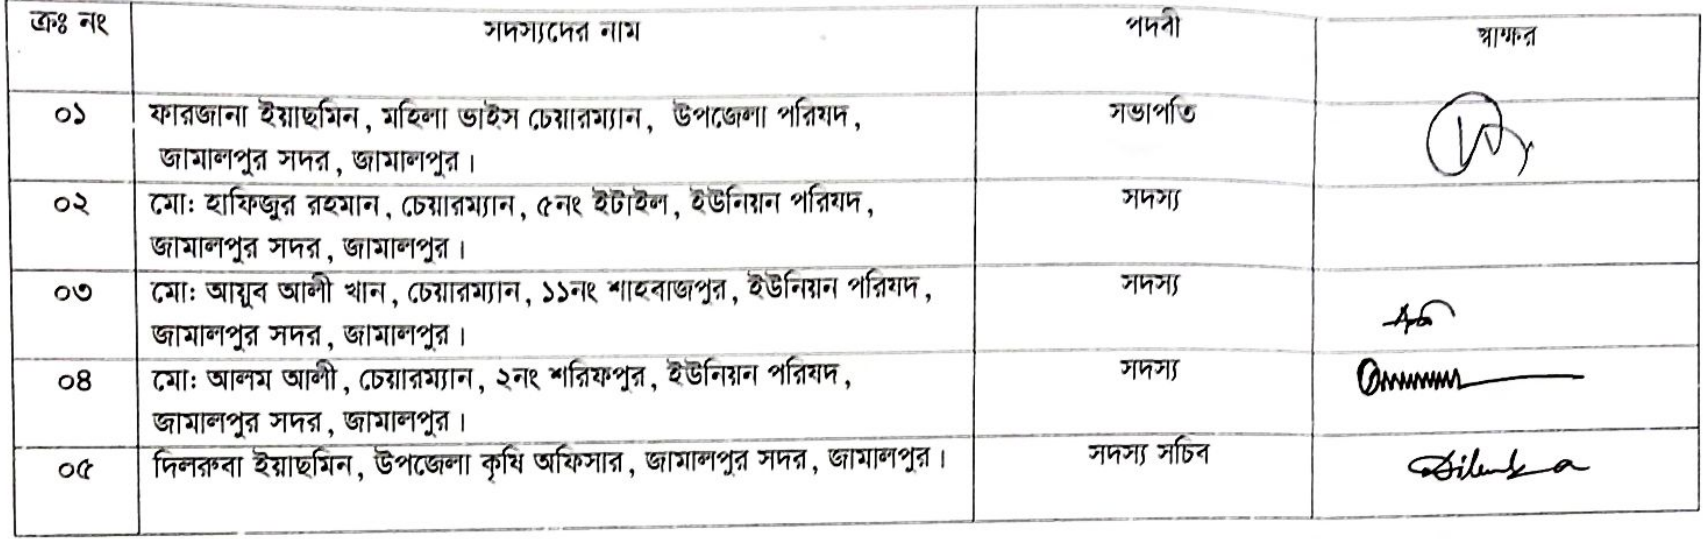 ক্রঃ নং সদস্যদের নাম পদবী স্বাক্ষর
০১ ফারজানা ইয়াছমিন, মহিলা ভাইস চেয়ারম্যান, উপজেলা পরিষদ, সভাপতি
জামালপুর সদর, জামালপুর।
০২ মো: হাফিজুর রহমান, চেয়ারম্যান, ৫নং ইটাইল, ইউনিয়ন পরিষদ, সদস্য
জামালপুর সদর, জামালপুর।
০৩ মো: আয়ুব আলী খান, চেয়ারম্যান, ১১নং শাহবাজপুর, ইউনিয়ন পরিষদ, সদস্য
জামালপুর সদর, জামালপুর।
০৪ মো: আলম আলী, চেয়ারম্যান, ২নং শরিফপুর, ইউনিয়ন পরিষদ, সদস্য
জামালপুর সদর, জামালপুর।
০৫ দিলরুবা ইয়াছমিন, উপজেলা কৃষি অফিসার, জামালপুর সদর, জামালপুর। সদস্য সচিব